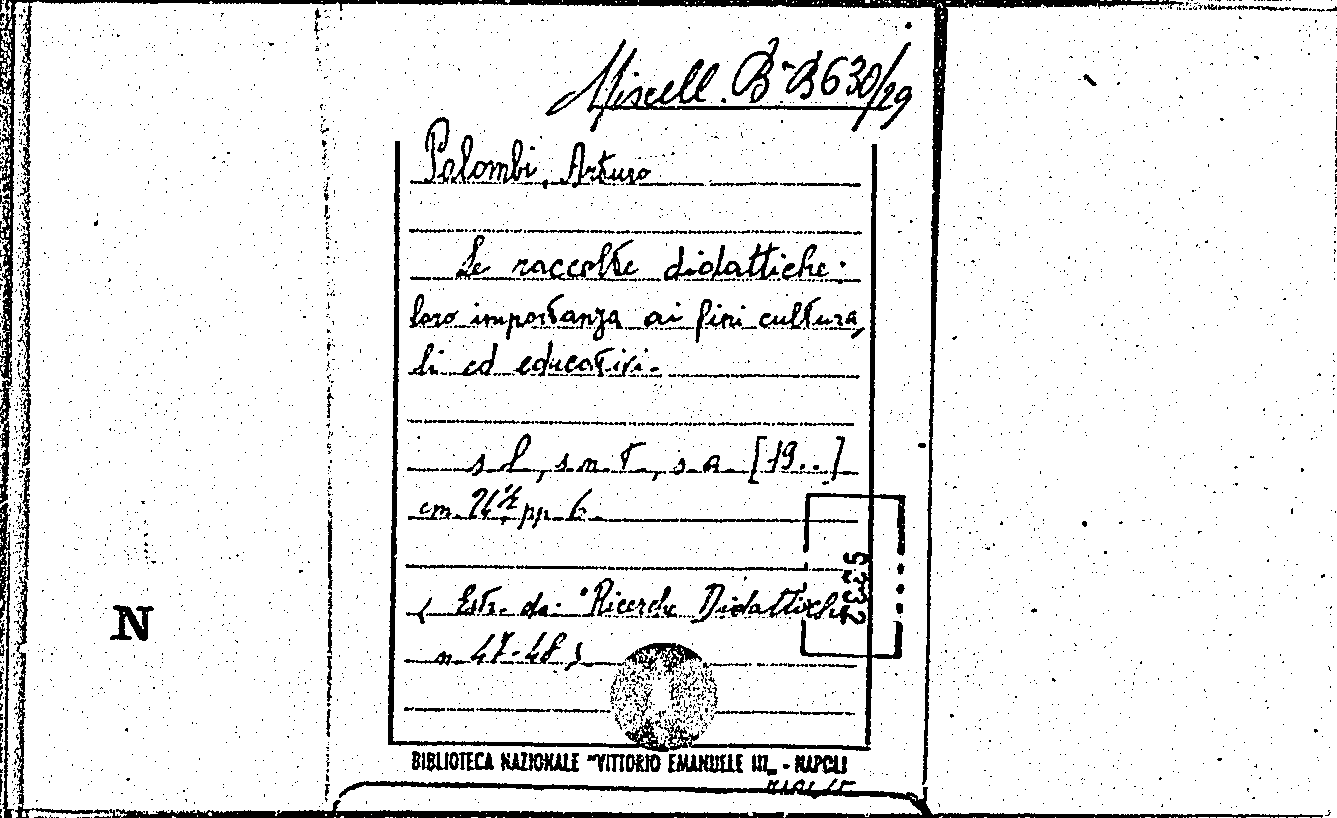 Miscell. B-B630/29
Palombi, Arturo
Le raccolte didattiche:
loro importanza ai fini cultura,
li ed educativi.
s. l., s. n. t., s. a. [19..]
cm. 24½ pp. 6.
(Estr. da: "Ricerche Didattiche
n. 47-48)
5332
N
BIBLIOTECA NAZIONALE "VITTORIO EMANUELE III" - NAPOLI